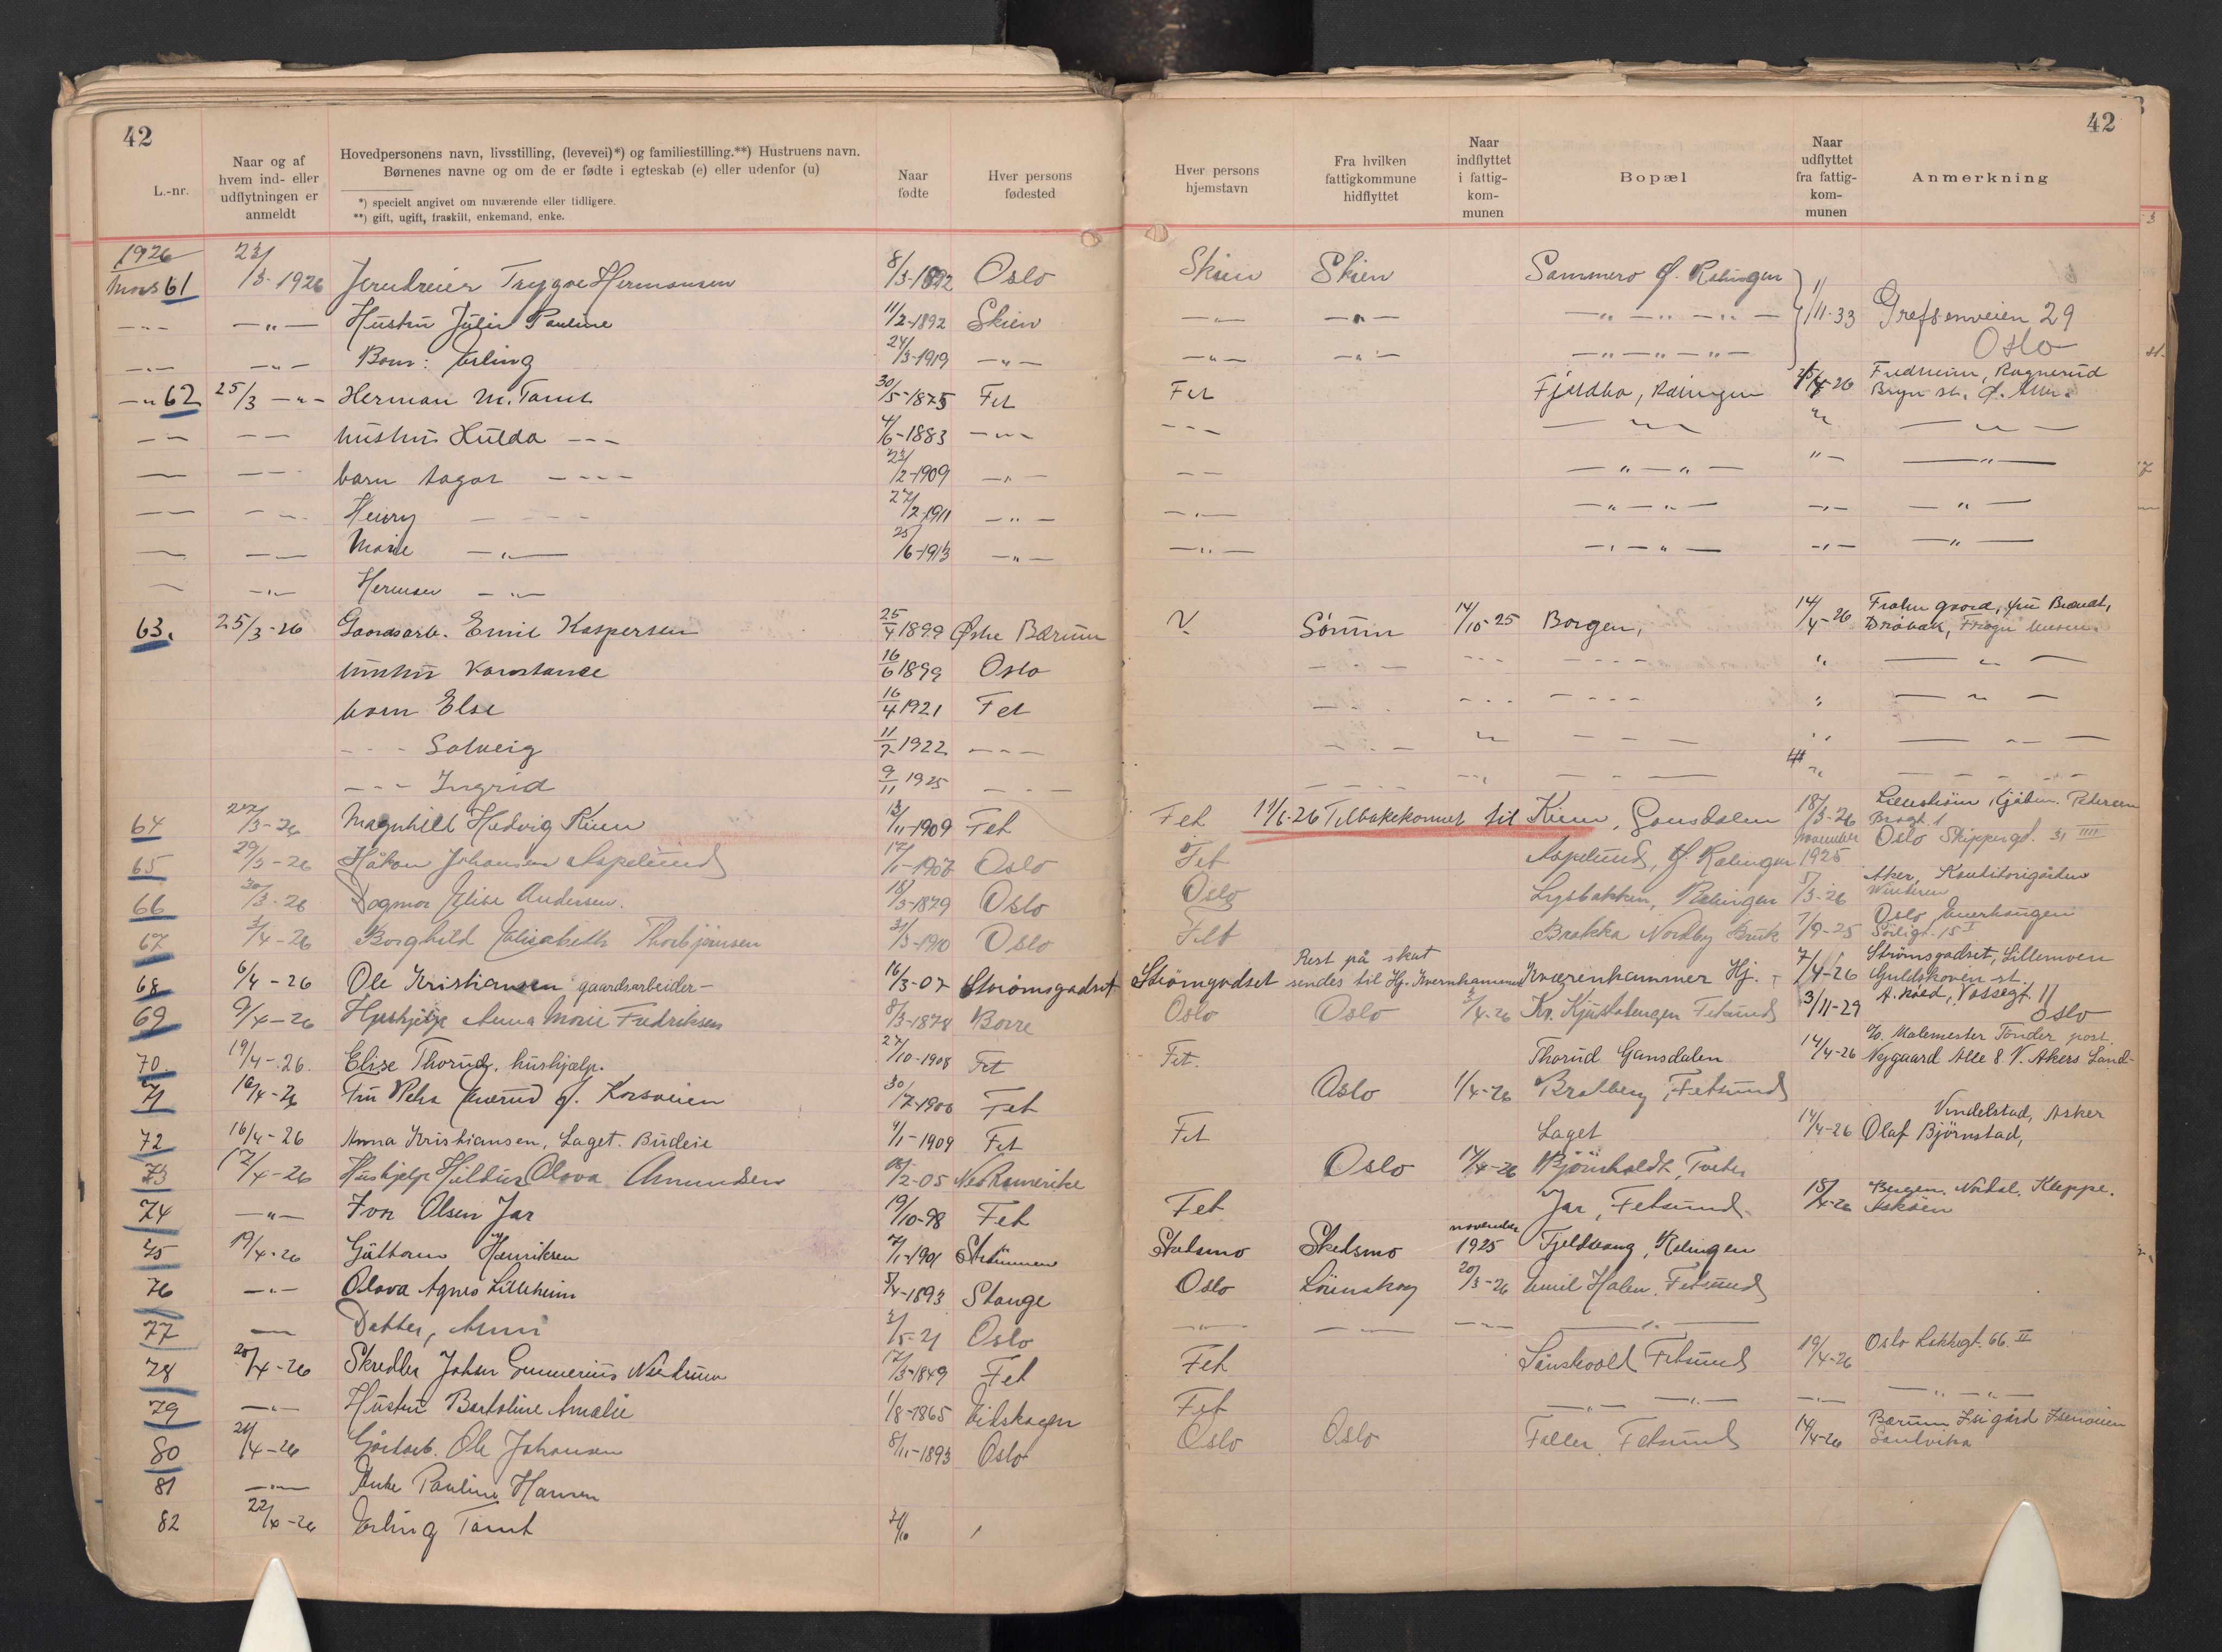 42
L.-nr.
Naar og af hvem ind- eller udflytningen er anmeldt
Hovedpersonens navn, livsstilling, (levevei)*) og familiestilling.**) Hustruens navn.
Børnenes navne og om de er fødte i egteskab (e) eller udenfor (u)
*) specielt angivet om nuværende eller tidligere.
**) gift, ugift, fraskilt, enkemand, enke.
Naar fødte
Hver persons fødested
Hver persons hjemstavn
Fra hvilken fattigkommune hidflyttet
Naar indflyttet i fattig-kom-munen
Bopæl
Naar udflyttet fra fattig-kom-munen
Anmerkning
42
1926
Mars 61 23/3-1926 Jerndreier Trygve Hermansen 8/3-1892 Oslo Skien Skien Sammero Ø. Rælingen 1/11-33 Grefsenveien 29
— " — Hustru Julie Pauline 11/2-1892 Skien — " — — " —
— " — Barn: Erling 24/3-1919 — " — — " — — " — Oslo
— " 62 25/3 — " — Herman M. Tamt 30/5-1875 Fet Fet Fjeldbo, Rælingen 4-26 Fredheim, Ragnerud
Bryn st. Ø. Aker
hustru Hulda — " — 4/6-1883 — " —
barn Aagot — " — 23/2-1909 — " —
Henry — " — 27/2-1911 — " —
Marie — " — 25/6-1913 — " —
Herman — " —
63. 25/3-26 Gaardsarb. Emil Kaspersen 25/4 1899 Østre Bærum Sørum 14/10-25 Borgen, 14/4-26 Frøhn gaard, fru Brandt,
Drøbak, Frogn
hustru Konstanse 16/6 1899 Oslo
barn Else 16/4 1921 Fet
— " — Solveig 11/7 1922 — " —
— " — Ingrid 9/11 1925 — " —
64 27/3-26 Magnhild Hedvig Kien 13/11-1909 Fet Fet 11/6-26 Tilbakekommet til Kien, Gansdalen 18/3-26 Lillestrøm Kjøbm. Petersen
Bragt. 1
65 29/3-26 Håkon Johansen Aspelund 17/1-1907 Oslo Fet Aspelund, Ø. Rælingen november 1925 Oslo Skippergt. 31 IIII
66 30/3-26 Dagmar Elise Andersen. 18/3-1879 Oslo Oslo Lysbakken, Rælingen 5/3-26 Aker, Konditorigården
Vinderen
67 3/4-26 Borghild Elisabeth Thorbjørnsen 31/3-1910 Oslo Fet Brakka Nordby Bruk 7/9-25 Oslo Enerhaugen
Smedgt. 15 I
68 6/4-26 Ole Kristiansen gaardsarbeider- 16/3-07 Strømsgodset Strømgodset Rest på skat
sendes til Hj. Kvernhammer Kværnhammer Hj. 7/4-26 Strømsgodset, Lillemoen
Guldskoven st.
69 9/4-26 Hushjelp Anna Marie Fredriksen 8/3-1878 Borre Oslo Oslo 3/4-26 Kr. Kjustahaugen Fetsund 3/11-29 A. Røed, Vossegt. 11
Oslo
70. 19/4-26. Elise Thorud, hushjælp. 27/10-1908 Fet Fet. Thorud Gansdalen 14/4-26 c/o. Malemester Tønder post.
Nygaard Alle 8 V. Akers Land-
71 16/4-26 Fru Petra Enerud Ø. Korsveien 30/7-1906 Fet Oslo 1/4-26 Bratberg, Fetsund
72 16/4-26 Anna Kristiansen, Laget. Budeie 9/1-1909 Fet Fet Laget 14/4-26 Vindelstad, Asker
Olaf Bjørnstad,
73 17/4-26 Hushjelp Hildur Olava Amundsen 2-05 Nes Romerike Oslo 14/4-26 Bjørnholdt, Tveter
74 — " — Ivar Olsen Jar 19/10-98 Fet Fet Jar, Fetsund 18/4-26 Bergen. Nordal, Kleppe.
Askøen
75 19/4-26 Guttorm Henriksen 7/1-1901 Strømmen Skedsmo Skedsmo november 1925 Fjeldvang, Rælingen
76 — " — Olava Agnes Lilleheim 5/4-1893 Stange Oslo Lørenskog 20/3-26 Emil Holen. Fetsund
77 — " — Datter, Anni 2/5-21 Oslo — " —
78 20/4-26 Skrædder Johan Gunnerius Nordrum 17/3-1849 Fet Fet Lønskvold Fetsund 19/4-26 Oslo Lakkegt. 66. II
79 — " — Hustru Bertoline Amalie 1/8-1865 Eidskogen Fet — " —
80 21/4-26 Gårdsarb. Ole Johansen 8/11-1893 Oslo Oslo Oslo Faller. Fetsund 14/4-26 Bærum Isi gård Isenveien
Sandvika
81 — " — Enke Pauline Hansen
82 22/4-26 Erling Tamt